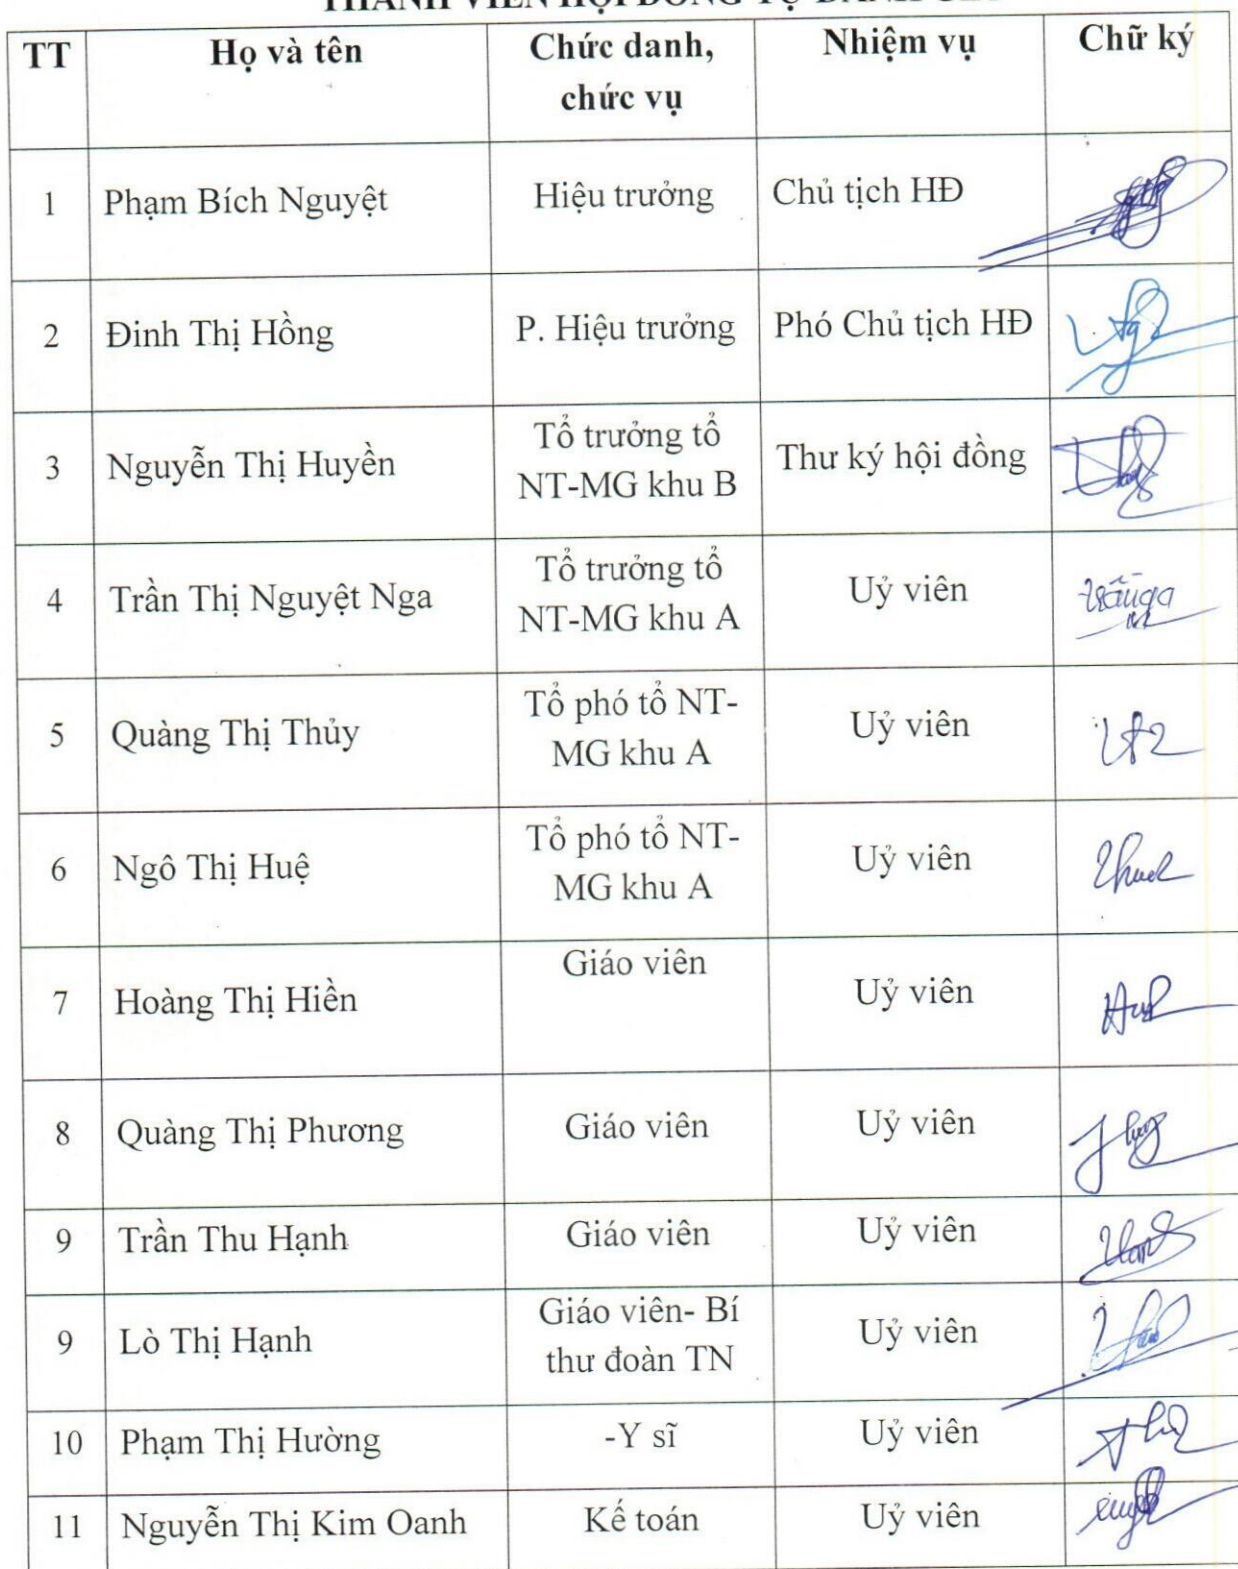 THÀNH VIÊN HỘI ĐỒNG TỰ ĐÁNH
TT Họ và tên Chức danh, chức vụ Nhiệm vụ Chữ ký
1 Phạm Bích Nguyệt Hiệu trưởng Chủ tịch HĐ
2 Đinh Thị Hồng P. Hiệu trưởng Phó Chủ tịch HĐ
3 Nguyễn Thị Huyền Tổ trưởng tổ
NT-MG khu B Thư ký hội đồng
4 Trần Thị Nguyệt Nga Tổ trưởng tổ
NT-MG khu A Uỷ viên
5 Quàng Thị Thủy Tổ phó tổ NT-
MG khu A Uỷ viên
6 Ngô Thị Huệ Tổ phó tổ NT-
MG khu A Uỷ viên
7 Hoàng Thị Hiền Giáo viên Uỷ viên
8 Quàng Thị Phương Giáo viên Uỷ viên
9 Trần Thu Hạnh Giáo viên Uỷ viên
9 Lò Thị Hạnh Giáo viên- Bí
thư đoàn TN Uỷ viên
10 Phạm Thị Hường -Y sĩ Uỷ viên
11 Nguyễn Thị Kim Oanh Kế toán Uỷ viên